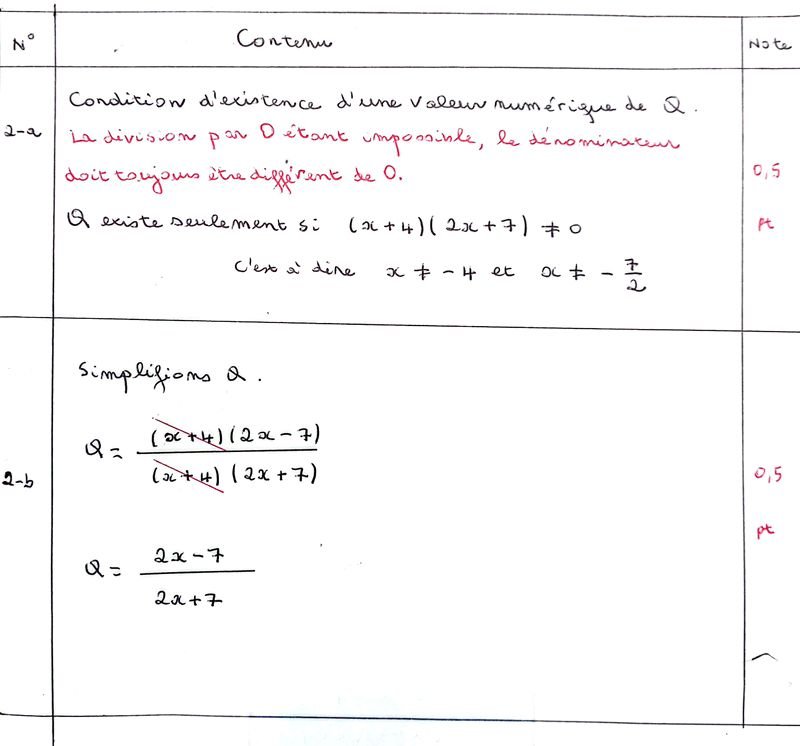 N° Contenu Note
2-a
Condition d'existence d'une valeur numérique de Q.
La division par 0 étant impossible, le dénominateur
doit toujours être différent de 0.
0,5
pt
Q existe seulement si (x+4)(2x+7) ≠ 0
C'est à dire x ≠ -4 et x ≠ - 7/2
2-b
Simplifions Q.
Q = (x+4)(2x-7) / (x+4)(2x+7)
0,5
pt
Q = 2x-7 / 2x+7